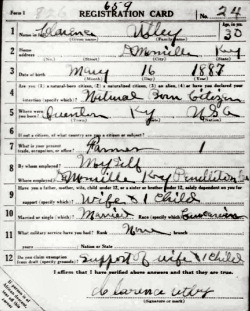 Form 1 659 No. 24
REGISTRATION CARD
1 Name in full Clarence Utley Age, in yrs. 30
2 Home address Ky
3 Date of birth May 16 1887
4 Are you (1) a natural-born citizen, (2) a naturalized citizen, (3) an alien, (4) or have you declared your intention (specify which)? Natural Born Citizen
5 Where were you born? Ky USA
6 If not a citizen, of what country are you a citizen or subject?
7 What is your present trade, occupation, or office? Farmer 1
8 By whom employed? My Self
Where employed? Ky Pendleton Co
9 Have you a father, mother, wife, child under 12, or a sister or brother under 12, solely dependent on you for support (specify which)? Wife & 1 Child
10 Married or single (which)? Married Race (specify which)? Caucasian
11 What military service have you had? Rank None branch
years Nation or State
12 Do you claim exemption from draft (specify grounds)? Support of wife & 1 Child
I affirm that I have verified above answers and that they are true.
Clarence Utley
(Signature or mark)